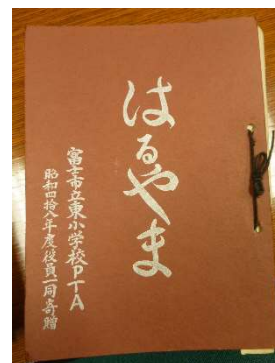 はるやま
富士市立東小学校PTA
昭和四拾八年度役員一同寄贈